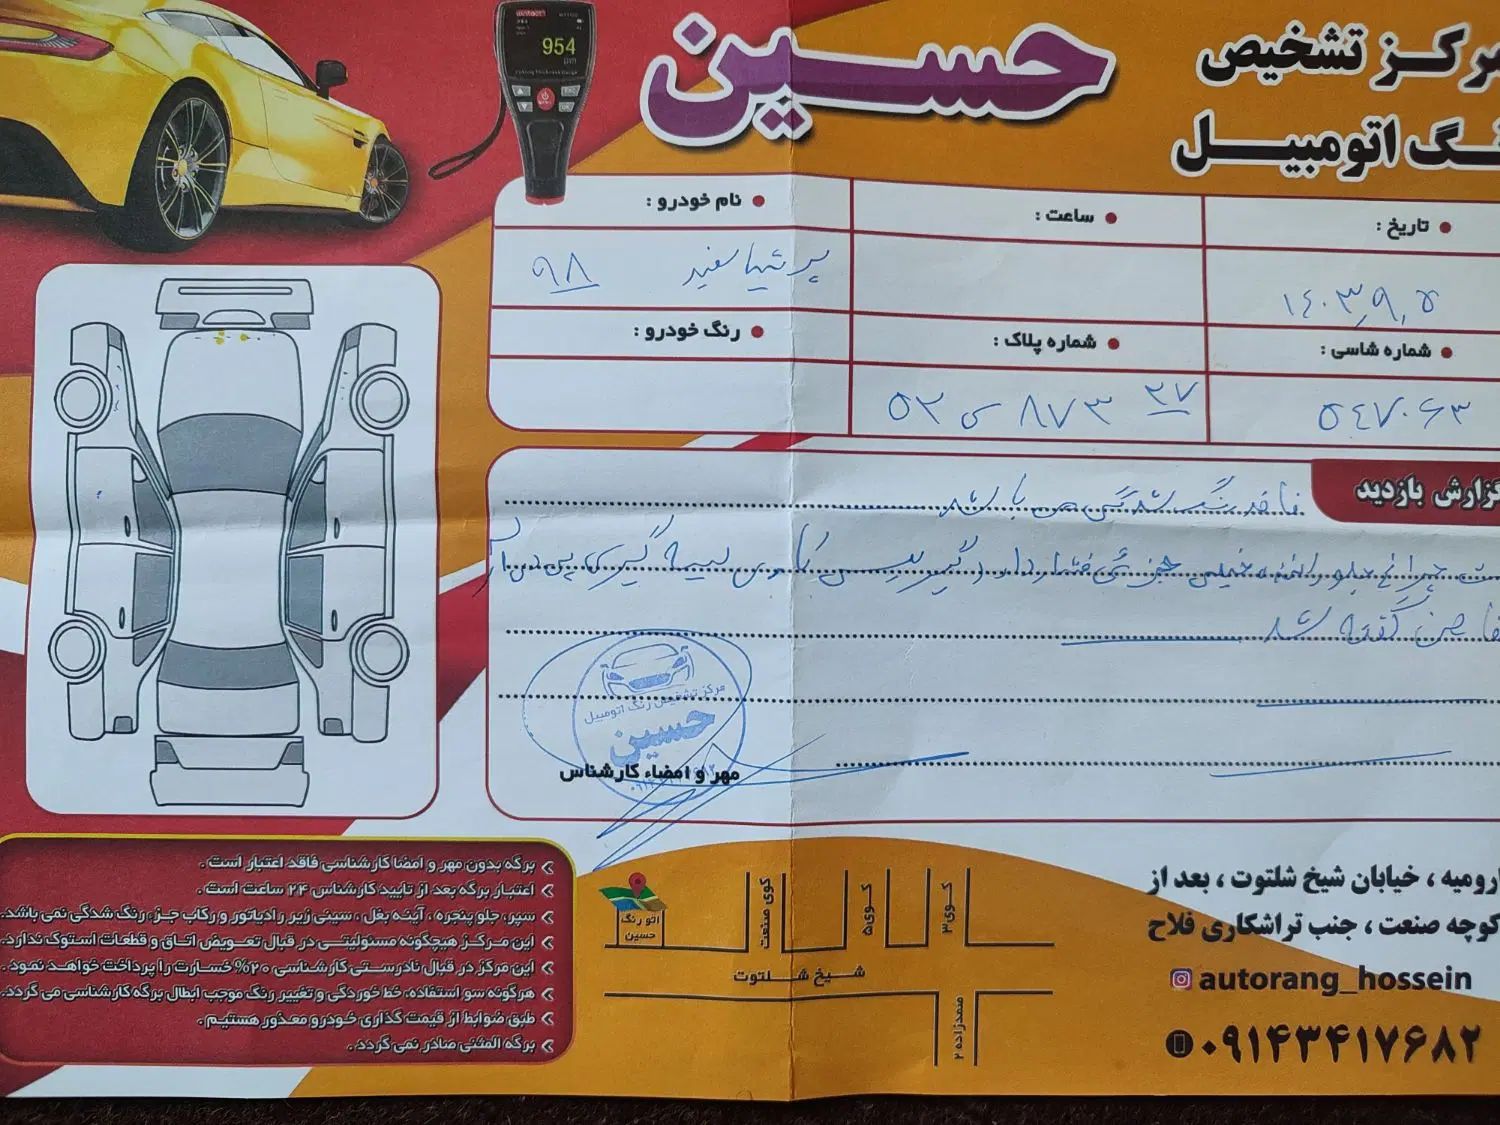 مرکز تشخیص
رنگ اتومبیل
حسین
954
تاریخ :
ساعت :
نام خودرو :
۱۴۰۳,۹,۵
پرشیا سفید ۹۸
شماره شاسی :
شماره پلاک :
رنگ خودرو :
۵۴۷۰۶۳
۵۲ س ۸۷۳ ۲۷
گزارش بازدید
فاقد رنگ شدگی می باشد
چراغ جلو راننده خیلی جزئی فشار دارد
گفته شد
مرکز تشخیص رنگ اتومبیل
حسین
مهر و امضاء کارشناس
برگه بدون مهر و امضا کارشناسی فاقد اعتبار است .
اعتبار برگه بعد از تایید کارشناس ۲۴ ساعت است .
سپر، جلو پنجره ، آینه بغل ، سینی زیر رادیاتور و رکاب جزء رنگ شدگی نمی باشد.
این مرکز هیچگونه مسئولیتی در قبال تعویض اتاق و قطعات استوک ندارد.
این مرکز در قبال نادرستی کارشناسی ۲۰% خسارت را پرداخت خواهد نمود .
هرگونه سو استفاده، خط خوردگی و تغییر رنگ موجب ابطال برگه کارشناسی می گردد.
طبق ضوابط از قیمت گذاری خودرو معذور هستیم .
برگه المثنی صادر نمی گردد .
اتو رنگ
حسین
کوی صنعت
کوی۵
کوی۳
شیخ شلتوت
صمدزاده ۲
ارومیه ، خیابان شیخ شلتوت ، بعد از
کوچه صنعت ، جنب تراشکاری فلاح
autorang_hossein
۰۹۱۴۳۴۱۷۶۸۲